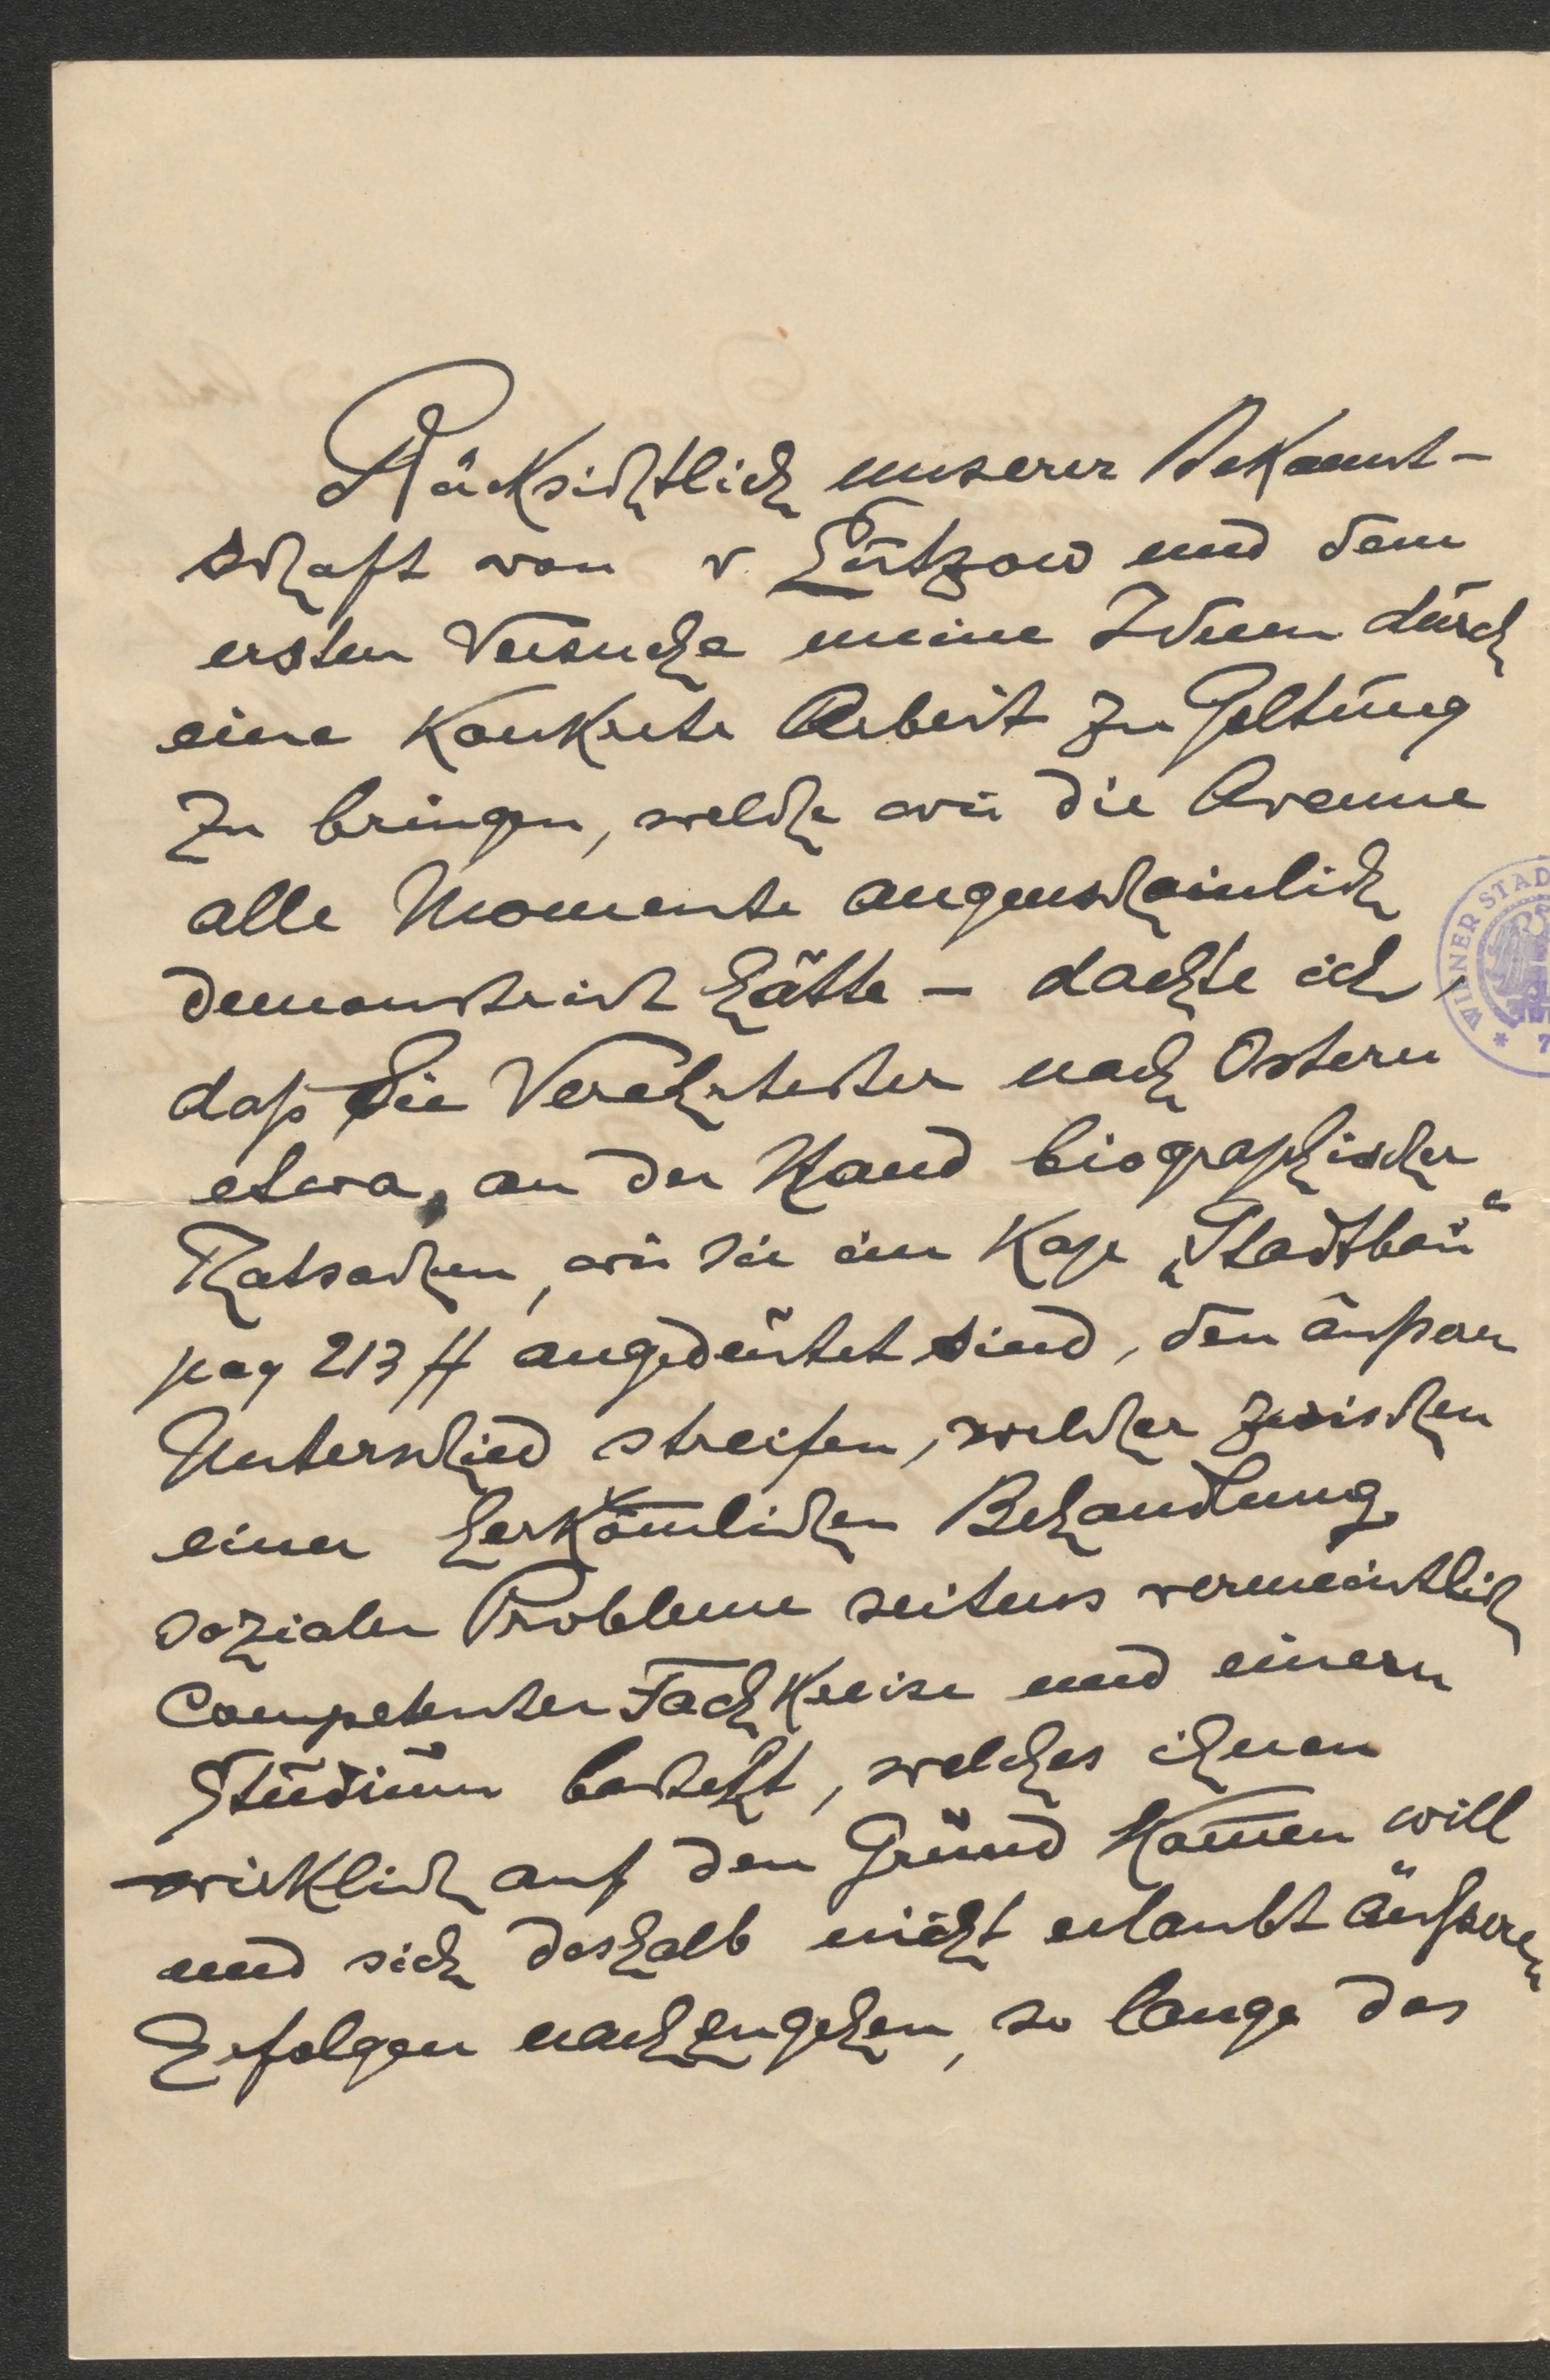 Rücksichtlich unserer Bekannt-
schaft von v. Lützow und dem
ersten Versuche meine Ideen durch
eine konkrete Arbeit zu Geltung
zu bringen, welche wie die Avenue
alle Momente augenscheinlich
demonstrirt hätte – dachte ich,
daß Sie Verehrtester nach Ostern
etwa, an der Hand biographischer
Thatsachen, wie sie im Kap „Stadtbau“
pag 213 ff angedeutet sind, den äußeren
Unterschied streifen, welcher zwischen
einer herkömlichen Behandlung
sozialer Probleme seitens vermeintlich
Competenter Fachkreise und einem
Studium besteht, welches ihnen
wirklich auf den Grund kom̄en will
und sich deshalb nicht erlaubt äußeren
Erfolgen nachzugehen, so lange das
WIENER STAD
* 7